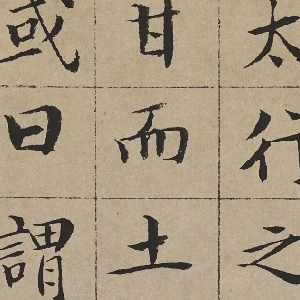 太行之
甘而土
或曰謂